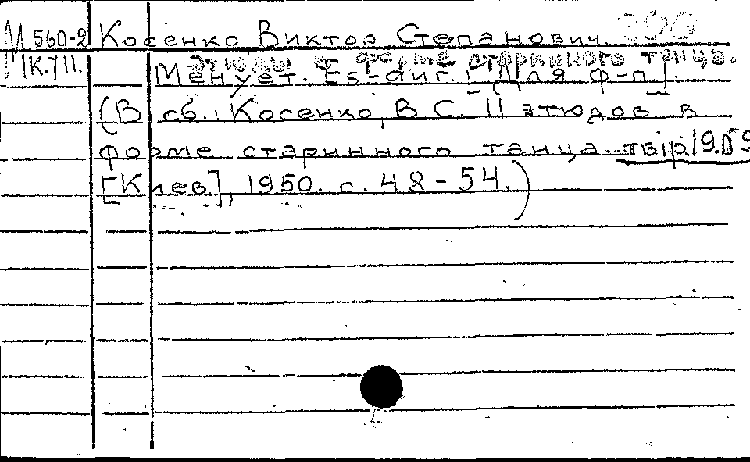 М 560-2 Косенко Виктор Степанович.
IX.711. Этюды в форме старинного танца.
Менуэт. Es-dur. [Для ф-п]
(В сб.: Косенко, В. С. 11 этюдов в
форме старинного танца
[Киев], 1950. с. 48-54.)